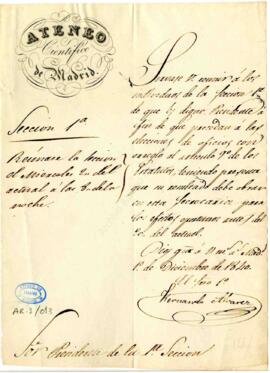 ATENEO
Científico
de Madrid.
Seccion 1ª
Reúnase la seccion
el Miércoles 2 del
actual á las 8 de la
noche.
Sírvase V. reunir á los
individuos de la Seccion 1ª
de que es digno Presidente á
fin de que procedan á las
elecciones de oficios con
arreglo al artículo 9º de los
Estatutos, teniendo presente
que su resultado debe obrar
en esta Secretaría para
los efectos oportunos antes del
20 del actual.
Dios gue á V. mª aª Madrid
1º de Diciembre de 1840.
El Srio 1º
Fernando Alvarez
AR-3/013
Sor Presidente de la 1ª Seccion